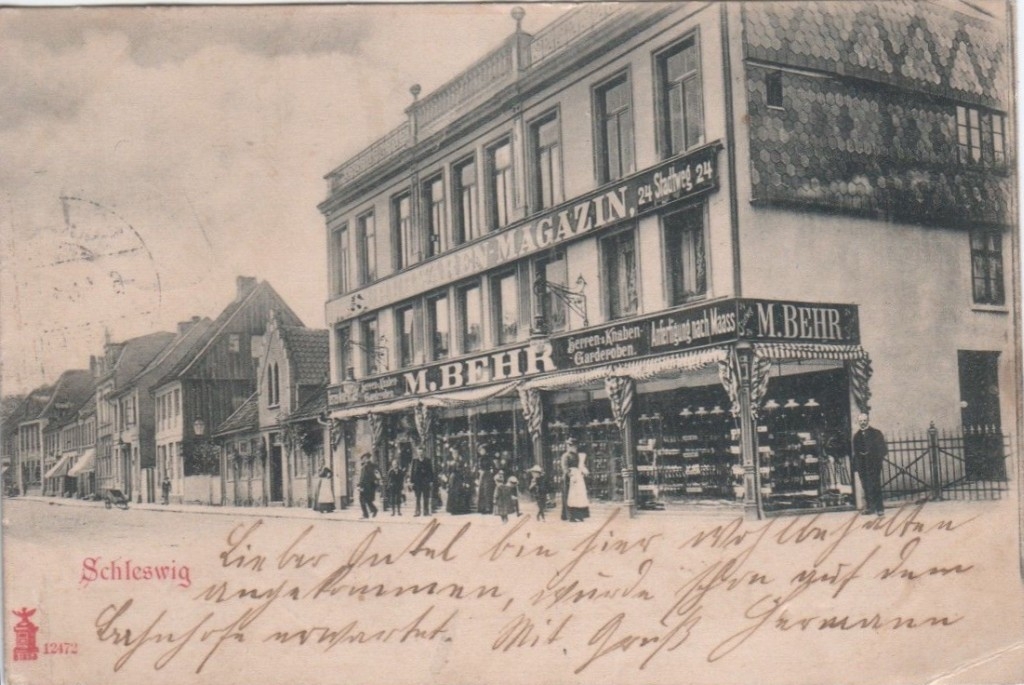 WAREN-MAGAZIN, 24 Stadtweg 24
M. BEHR
Herren & Knaben
Garderoben.
Anfertigung nach Maass
M. BEHR
Schleswig
12472
Lieber Onkel bin hier wohlbehalten
angekommen, wurde schon auf dem
Bahnhofe erwartet. Mit Gruß Hermann